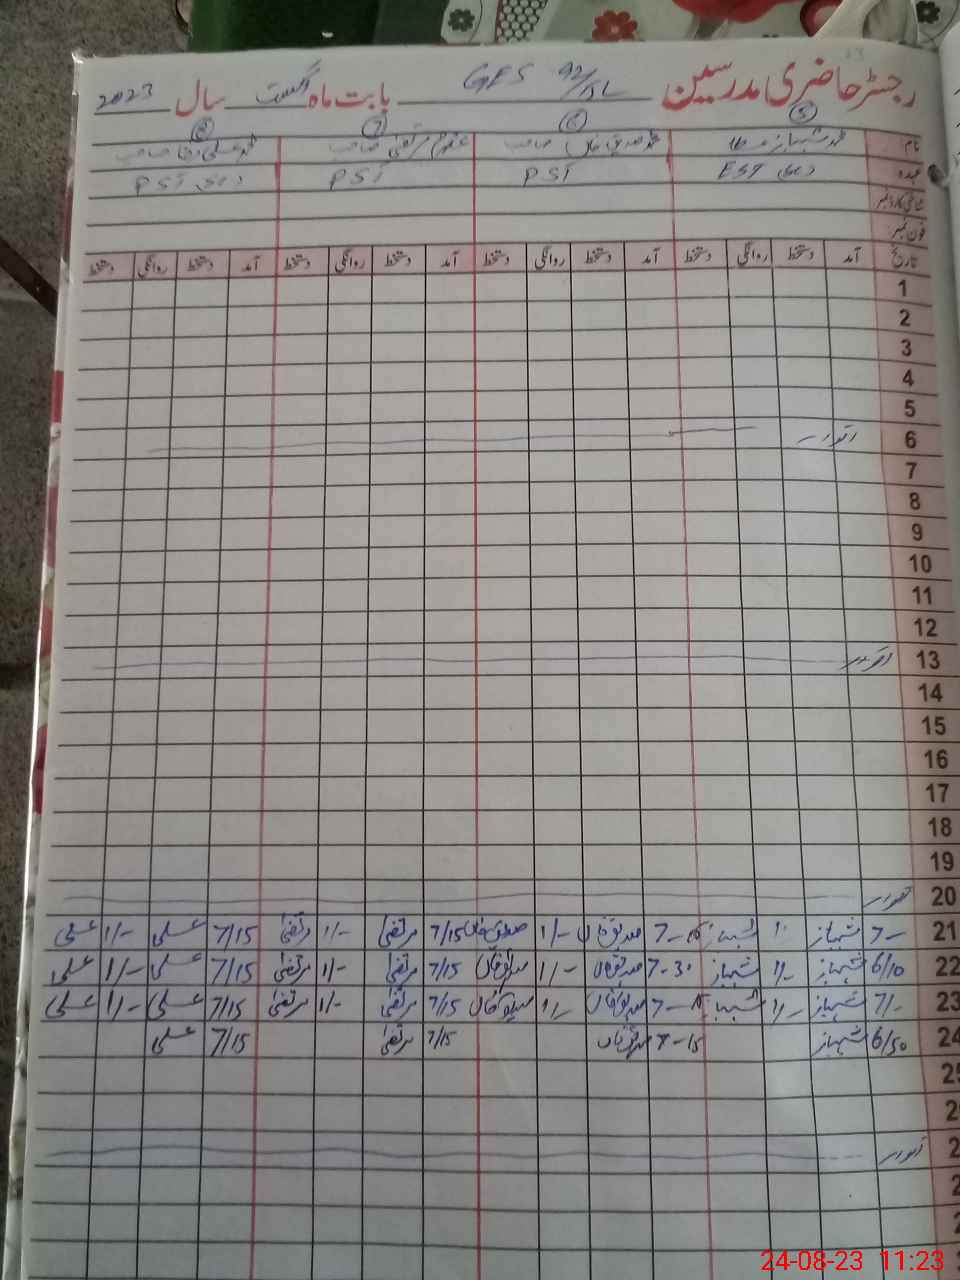 رجسٹر حاضری مدرسین GES 92/15L بابت ماہ اگست سال 2023
5 6 7 8
نام محمد شہباز محمد صدیق خاں صاحب غلام مرتضیٰ صاحب محمد علی رضا صاحب
عہدہ EST PST PST PST
شناختی کارڈ نمبر
فون نمبر
تاریخ آمد دستخط روانگی دستخط آمد دستخط روانگی دستخط آمد دستخط روانگی دستخط آمد دستخط روانگی دستخط
1
2
3
4
5
6 اتوار
7
8
9
10
11
12
13 اتوار
14
15
16
17
18
19
20 اتوار
21 7- شہباز 1/- شہباز 7-15 صدیق خاں 1/- صدیق خاں 7/15 مرتضیٰ 1/- مرتضیٰ 7/15 علی 1/- علی
22 6/10 شہباز 1/- شہباز 7-30 صدیق خاں 1/- صدیق خاں 7/15 مرتضیٰ 1/- مرتضیٰ 7/15 علی 1/- علی
23 7/- شہباز 1/- شہباز 7-15 صدیق خاں 1/- صدیق خاں 7/15 مرتضیٰ 1/- مرتضیٰ 7/15 علی 1/- علی
24 6/50 شہباز 7-15 صدیق خاں 7/15 مرتضیٰ 7/15 علی
25
2
2 اتوار
2
2
24-08-23 11:23